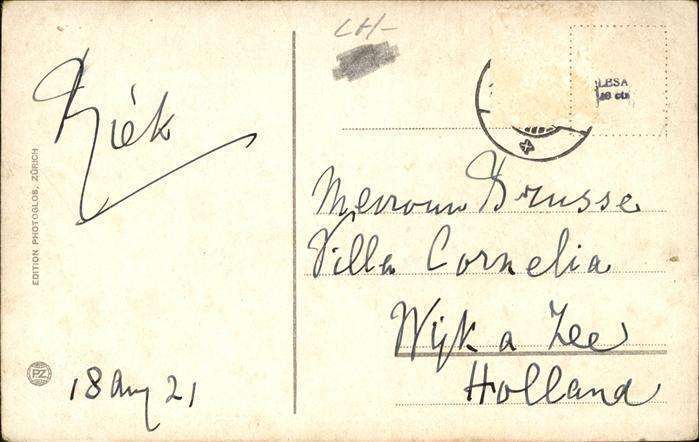 CH-
LBSA
Riek
EDITION PHOTOGLOB, ZÜRICH
PZ
18 Aug 21
Mevrouw Brusse
Villa Cornelia
Wijk a Zee
Holland